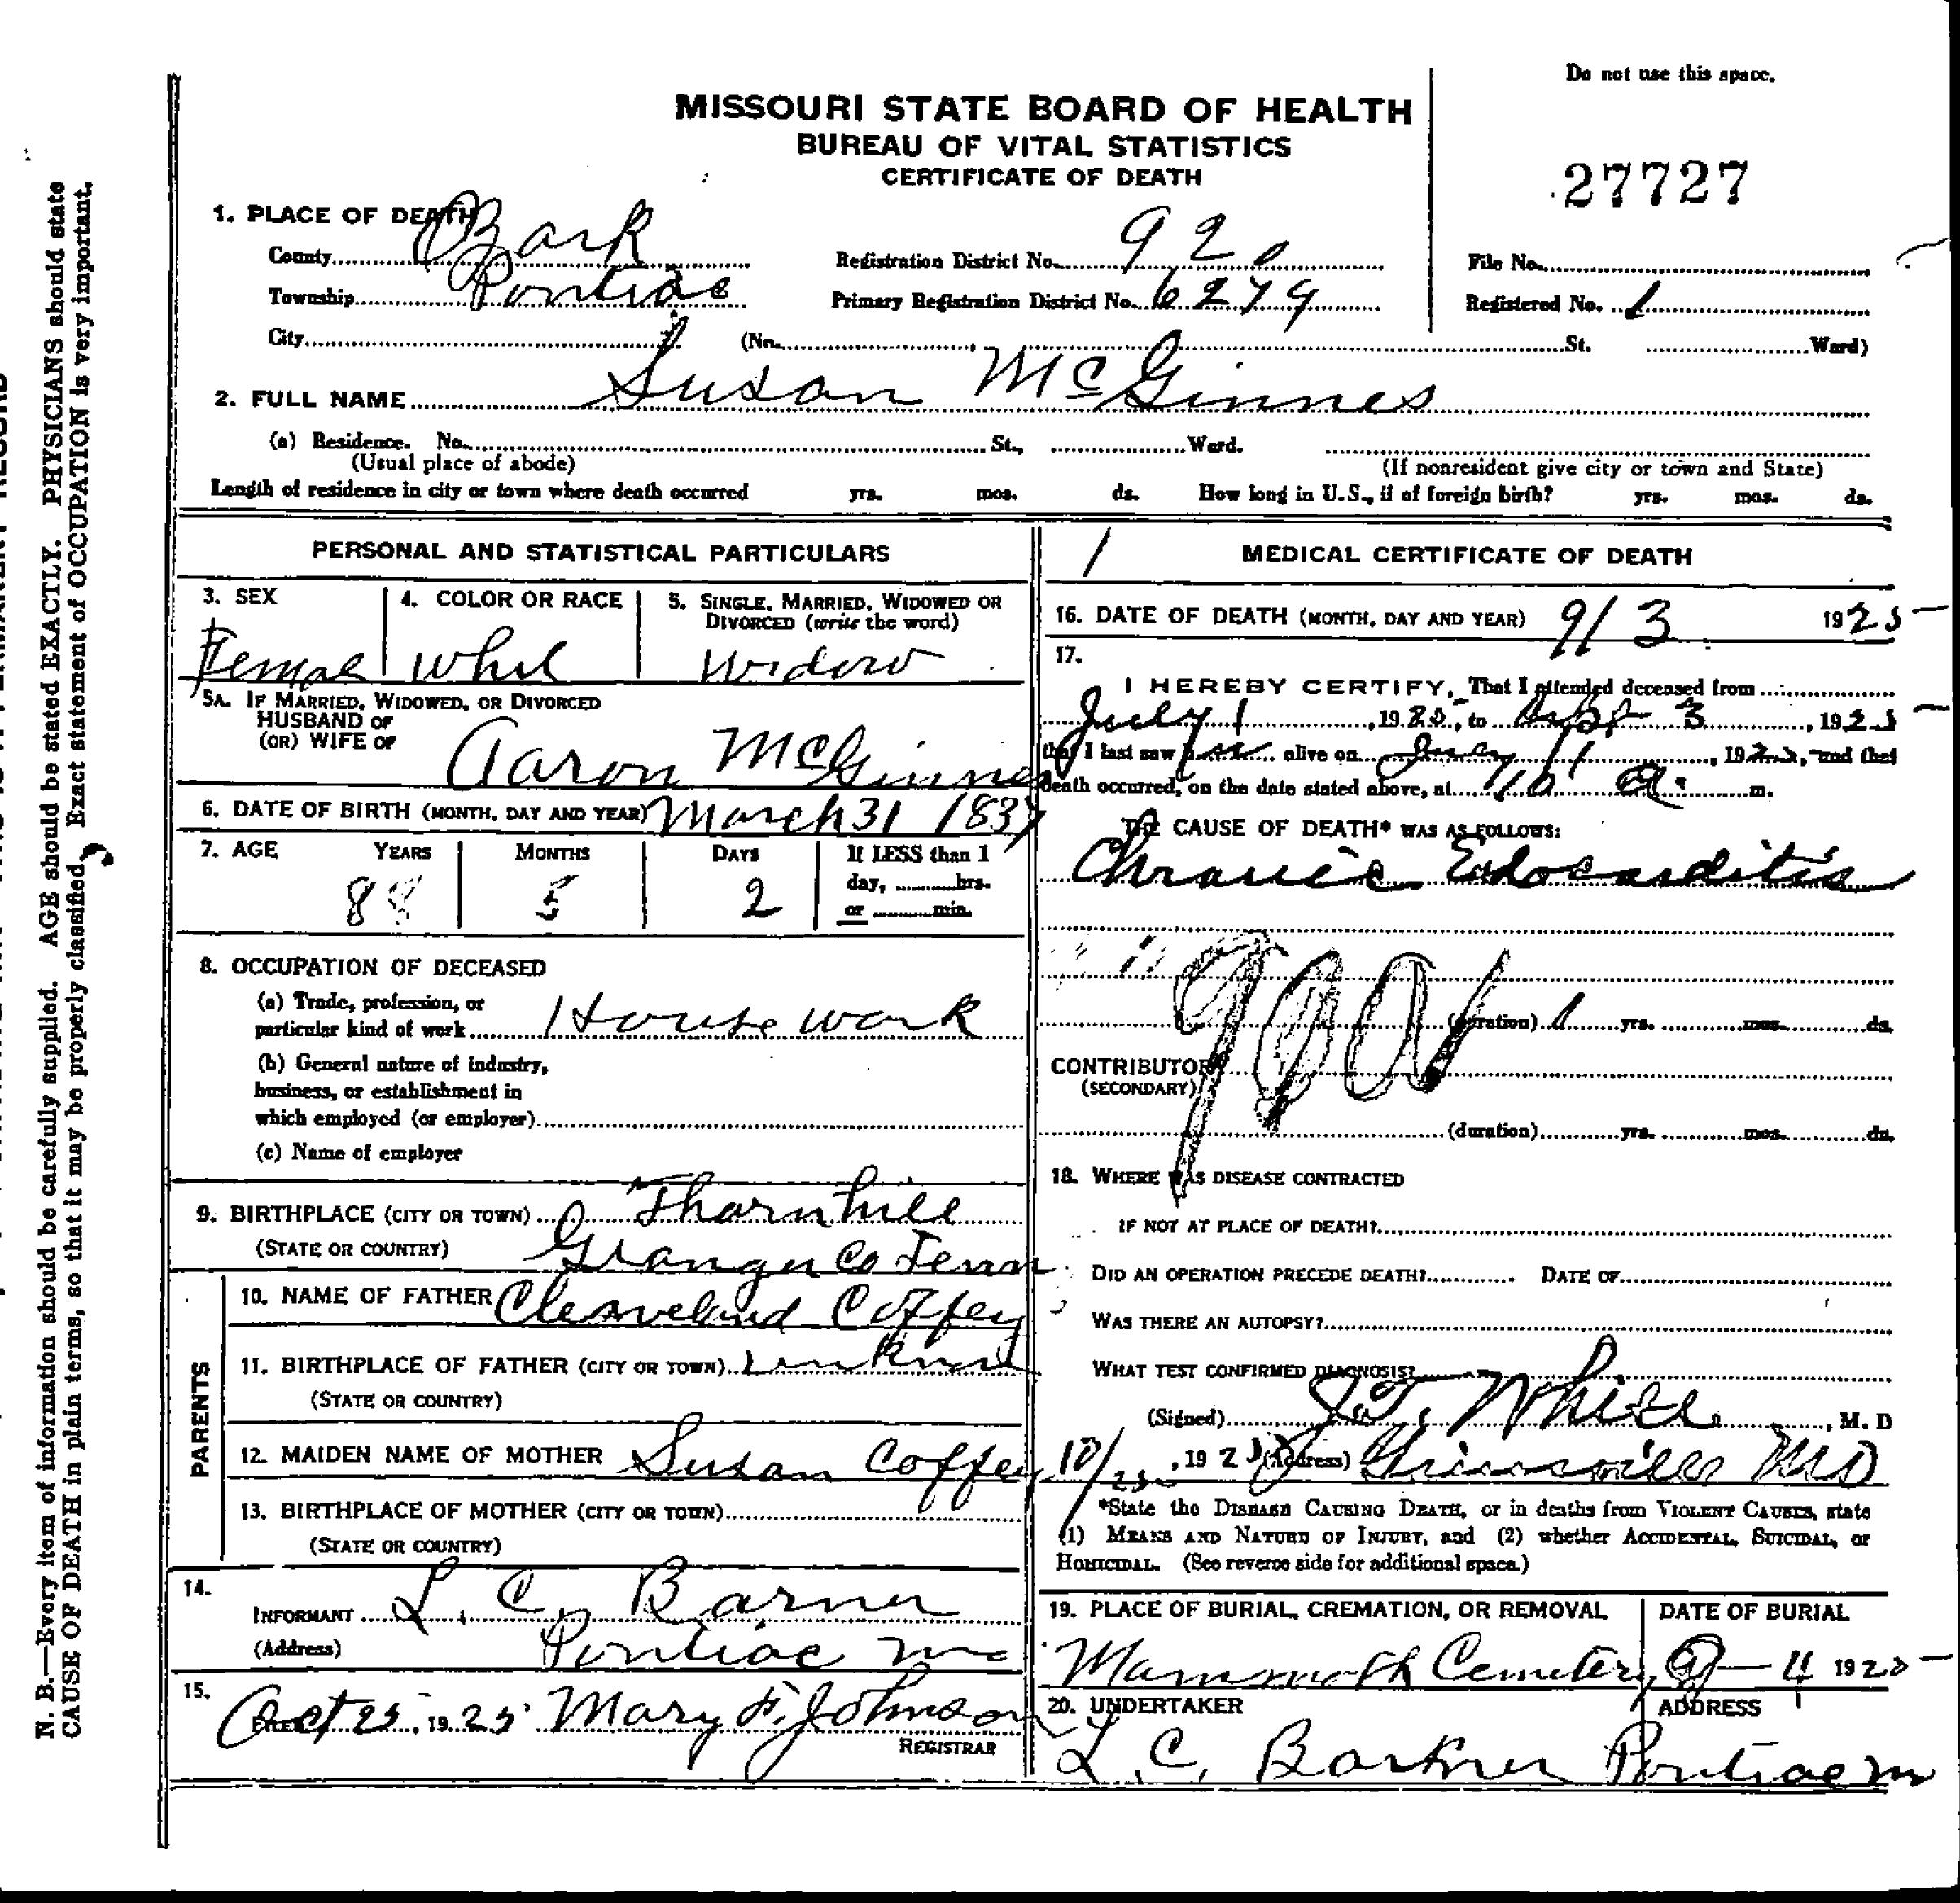 Do not use this space.
MISSOURI STATE BOARD OF HEALTH
BUREAU OF VITAL STATISTICS
CERTIFICATE OF DEATH
27727
1. PLACE OF DEATH
County Ozark Registration District No. 920 File No.
Township Pontiac Primary Registration District No. 6279 Registered No. 1
City (No. , St. Ward)
2. FULL NAME Susan McGinnes
(a) Residence. No. St., Ward.
(Usual place of abode) (If nonresident give city or town and State)
Length of residence in city or town where death occurred yrs. mos. ds. How long in U.S., if of foreign birth? yrs. mos. ds.
PERSONAL AND STATISTICAL PARTICULARS
3. SEX 4. COLOR OR RACE 5. SINGLE, MARRIED, WIDOWED OR
DIVORCED (write the word)
Female Widow
5A. IF MARRIED, WIDOWED, OR DIVORCED
HUSBAND OF
(OR) WIFE OF Aaron McGinnes
6. DATE OF BIRTH (MONTH, DAY AND YEAR) March 31 1837
7. AGE YEARS MONTHS DAYS If LESS than 1
day, hrs.
or min.
88 5 2
8. OCCUPATION OF DECEASED
(a) Trade, profession, or
particular kind of work House work
(b) General nature of industry,
business, or establishment in
which employed (or employer)
(c) Name of employer
9. BIRTHPLACE (CITY OR TOWN) Thornhill
(STATE OR COUNTRY) Granger Co Tenn
PARENTS
10. NAME OF FATHER Cleaveland Coffey
11. BIRTHPLACE OF FATHER (CITY OR TOWN)
(STATE OR COUNTRY)
12. MAIDEN NAME OF MOTHER Susan Coffey
13. BIRTHPLACE OF MOTHER (CITY OR TOWN)
(STATE OR COUNTRY)
14.
INFORMANT L. C. Barner
(Address) Pontiac Mo
15.
FILED Oct 25, 1925 Mary F. Johnson
REGISTRAR
1 MEDICAL CERTIFICATE OF DEATH
16. DATE OF DEATH (MONTH, DAY AND YEAR) 9/3 1925
17.
I HEREBY CERTIFY, That I attended deceased from
July 1, 1925, to Sept 3, 1925
that I last saw her alive on , 192 , and that
death occurred, on the date stated above, at 10 a. m.
THE CAUSE OF DEATH* WAS AS FOLLOWS:
Chronic Edocarditis
(duration) 1 yrs. mos. ds.
CONTRIBUTORY
(SECONDARY)
(duration) yrs. mos. ds.
18. WHERE WAS DISEASE CONTRACTED
IF NOT AT PLACE OF DEATH?
DID AN OPERATION PRECEDE DEATH? DATE OF
WAS THERE AN AUTOPSY?
WHAT TEST CONFIRMED DIAGNOSIS?
(Signed) White, M. D
10/25, 1925 (Address) MO
*State the DISEASE CAUSING DEATH, or in deaths from VIOLENT CAUSES, state
(1) MEANS AND NATURE OF INJURY, and (2) whether ACCIDENTAL, SUICIDAL, or
HOMICIDAL. (See reverse side for additional space.)
19. PLACE OF BURIAL, CREMATION, OR REMOVAL DATE OF BURIAL
Mammoth Cemetery 9-4 1925
20. UNDERTAKER ADDRESS
L. C. Barkner Pontiac M
N. B.—Every item of information should be carefully supplied. AGE should be stated EXACTLY. PHYSICIANS should state
CAUSE OF DEATH in plain terms, so that it may be properly classified. Exact statement of OCCUPATION is very important.